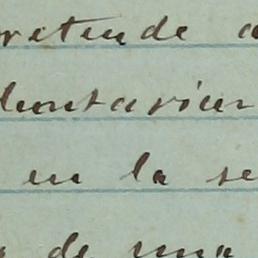 retende a
luntarier
en la se
de una